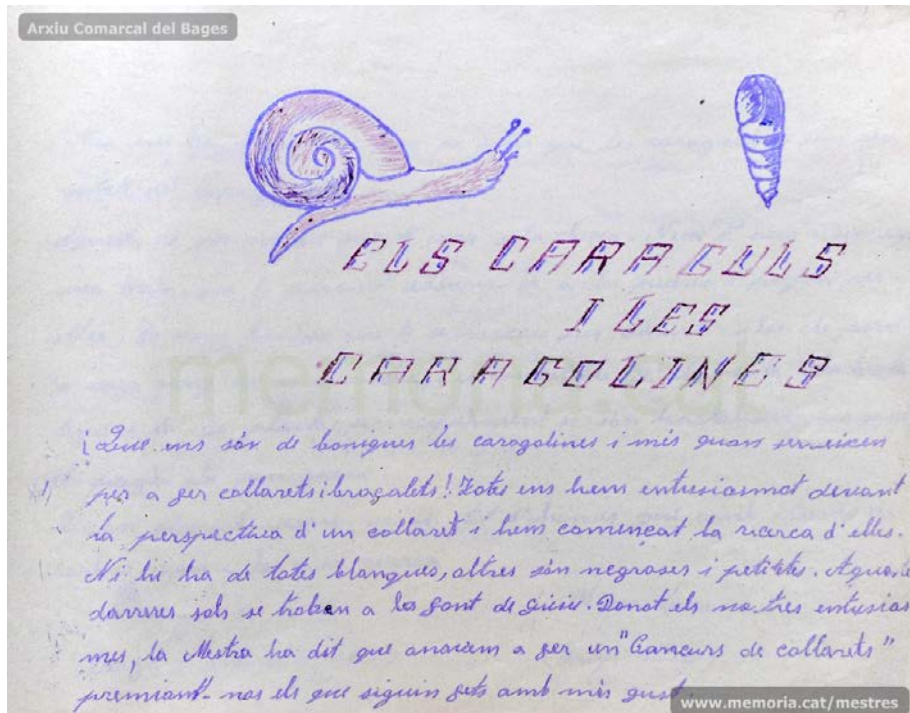 Arxiu Comarcal del Bages
ELS CARAGULS
I LES
CARAGOLINES
¡Que ens són de boniques les caragolines i més quan serveixen
per a fer collarets i braçalets! Totes ens hem entusiasmat devant
la perspectiva d'un collaret i hem començat la recerca d'elles.
Ni hu ha de totes blanques, altres són negroses i petitetes. Aquestes
darreres sols se troben a la font de. Donat els nostres entusias
mes, la Mestra ha dit que anavem a fer un "Concurs de collarets"
premiant-nos els que siguin fets amb més gust.
memoria.cat
www.memoria.cat/mestres